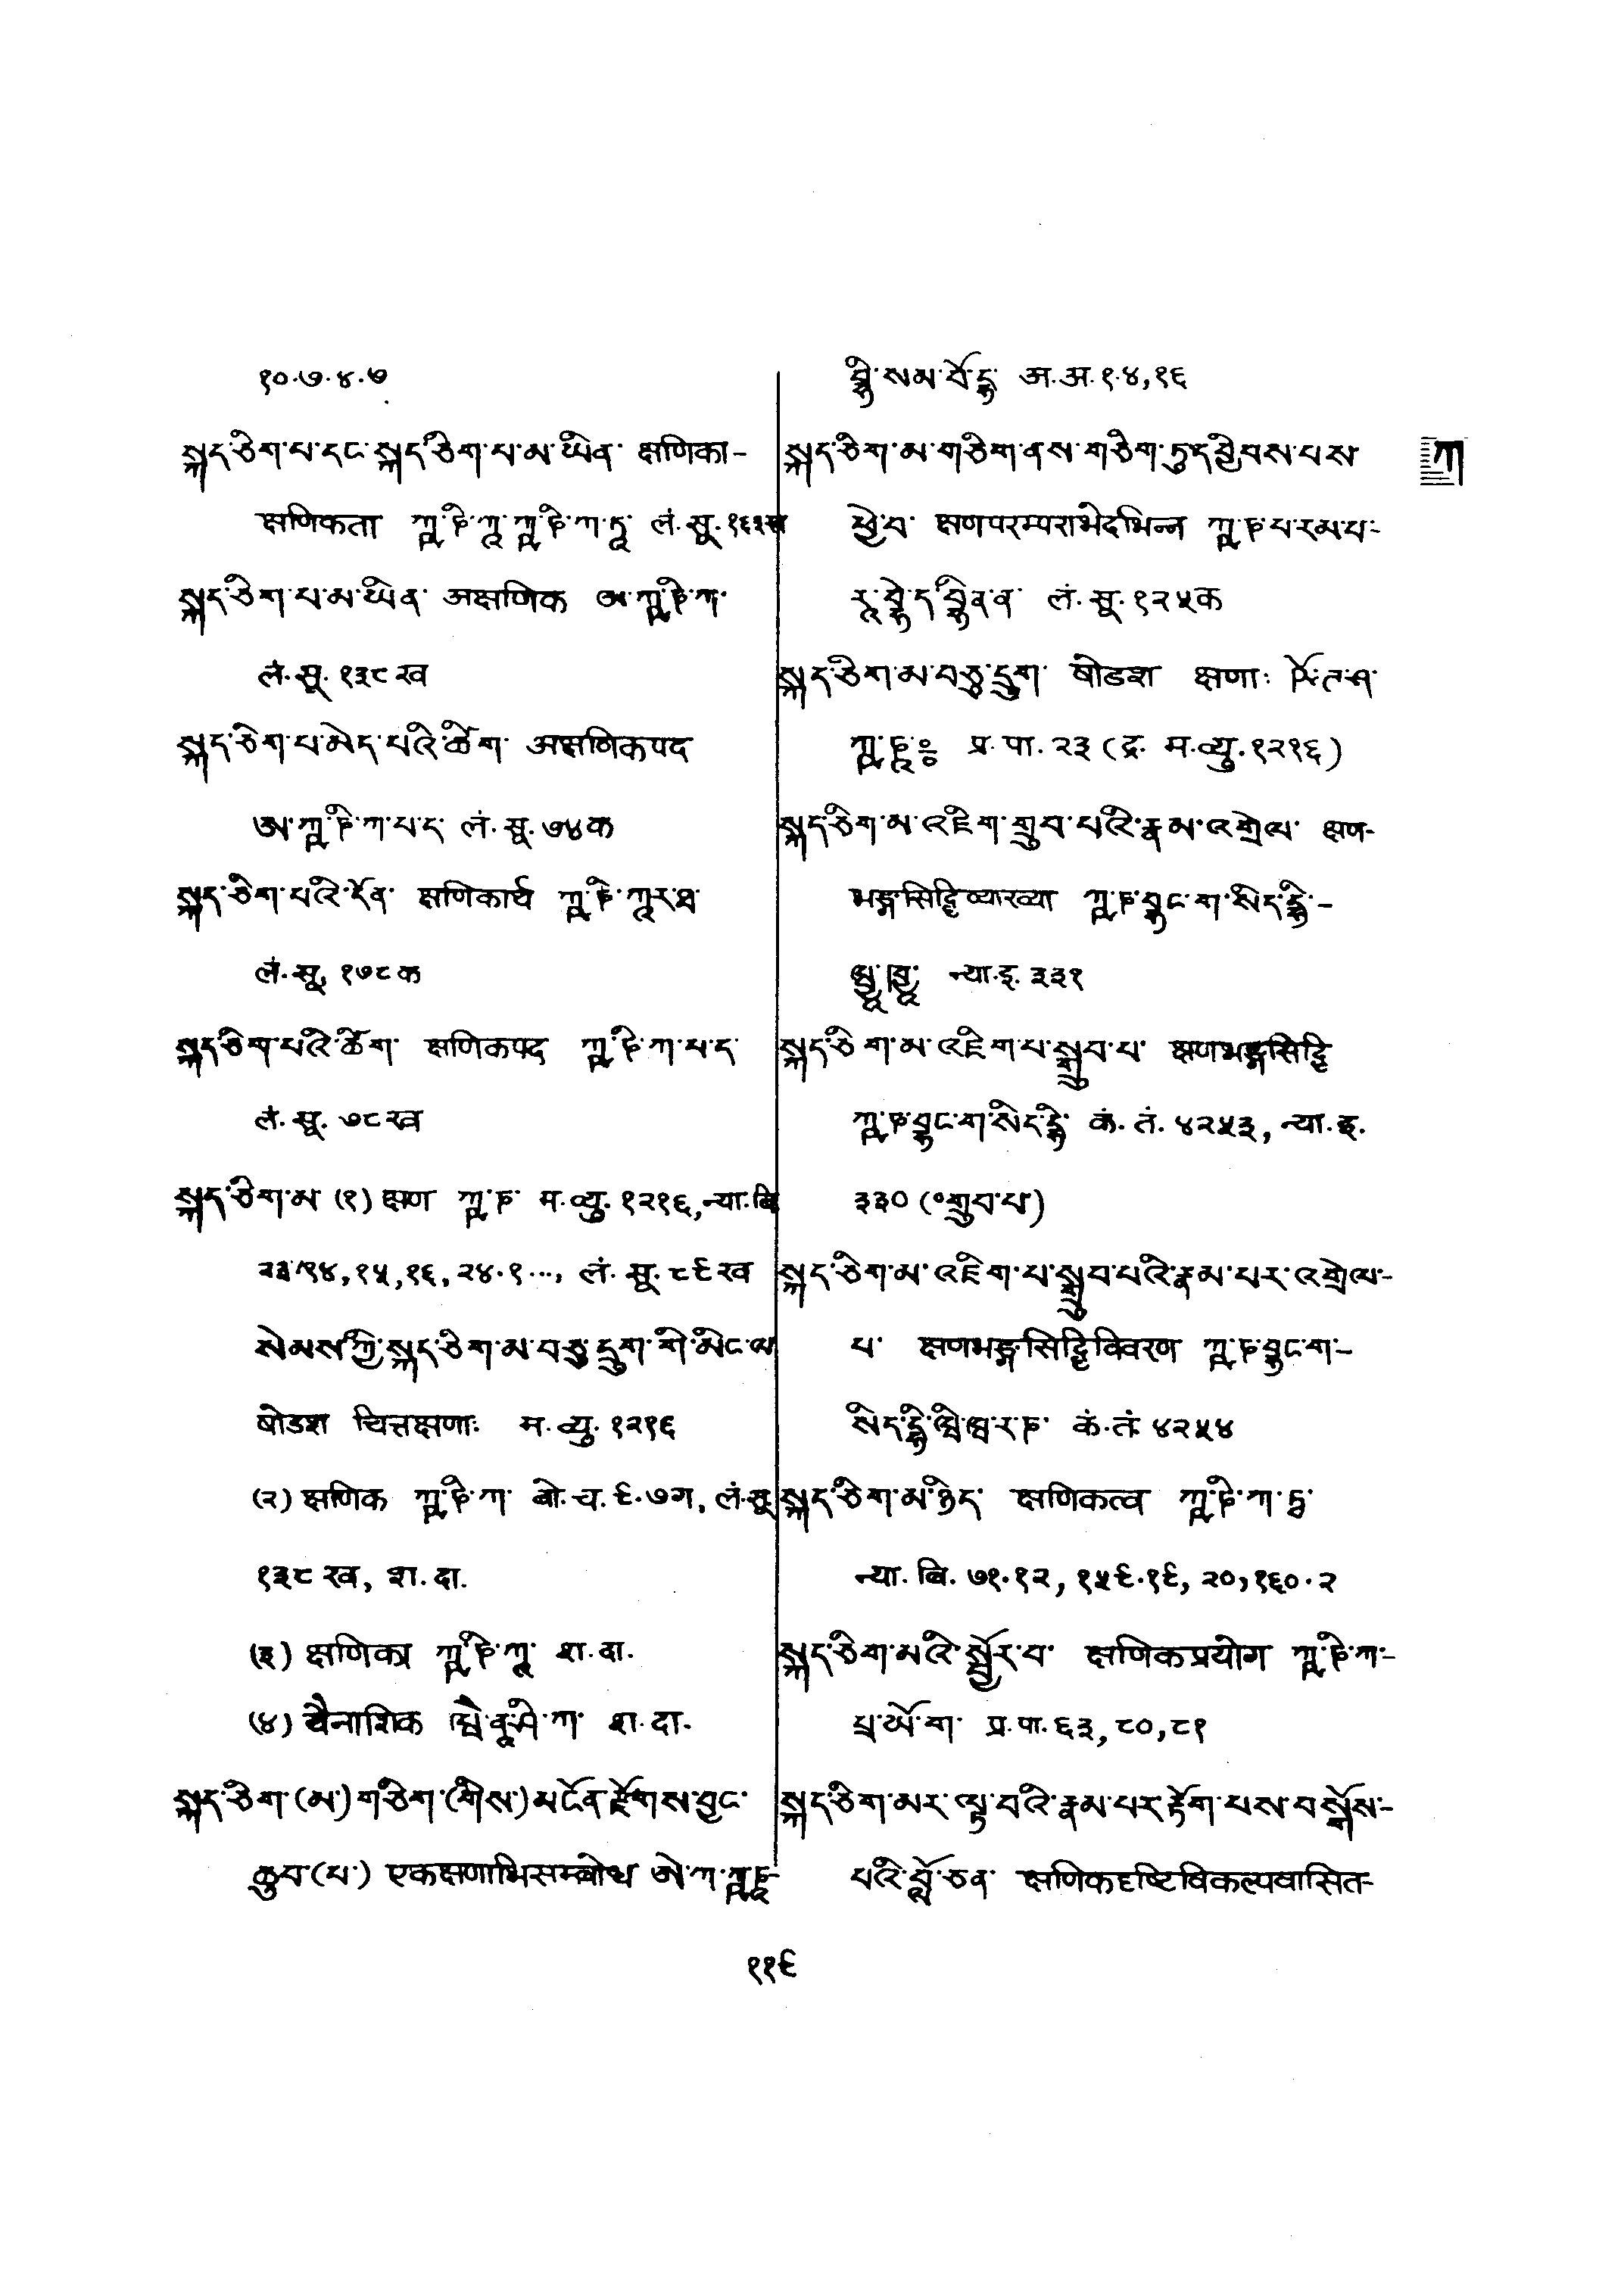 १०.७.४.७
སྐད་ཅིག་པ་དང་སྐད་ཅིག་པ་མ་ཡིན་ क्षणिका-
क्षणिकता ཀྵ་ཎི་ཀཱ་ཀྵ་ཎི་ཀ་ཏཱ་ लं.सू.१६३ख
སྐད་ཅིག་པ་མ་ཡིན་ अक्षणिक ཨ་ཀྵ་ཎི་ཀ་
लं.सू.१३८ख
སྐད་ཅིག་པ་མེད་པའི་ཚིག་ अक्षणिकपद
ཨ་ཀྵ་ཎི་ཀ་པ་ད་ लं.सू.७४क
སྐད་ཅིག་པའི་དོན་ क्षणिकार्थ ཀྵ་ཎི་ཀཱ་ར་ཐ་
लं.सू. १७८क
སྐད་ཅིག་པའི་ཚིག་ क्षणिकपद ཀྵ་ཎི་ཀ་པ་ད་
लं.सू. ७८ख
སྐད་ཅིག་མ (१) क्षण ཀྵ་ཎ་ म.व्यु. १२१६, न्या.बि
२३.१४,१५,१६, २४.१..., लं. सू. ८९ख
སེམས་ཀྱི་སྐད་ཅིག་མ་བཅུ་དྲུག་གི་མིང་ལ
षोडश चित्तक्षणाः म.व्यु. १२१६
(२) क्षणिक ཀྵ་ཎི་ཀ་ बो.च.९.७ग, लं.सू
१३८ख, श.दा.
(३) क्षणिका ཀྵ་ཎི་ཀཱ་ श.दा.
(४) वैनाशिक ཝཻ་ནཱ་ཤི་ཀ་ श.दा.
སྐད་ཅིག་(མ་)གཅིག་(གིས་)མངོན་རྫོགས་བྱང་
ཆུབ་(པ་) एकक्षणाभिसम्बोध ཨེ་ཀ་ཀྵ་ཎཱ-
བྷི་སམ་བོ་དྷ་ अ.अ.१.४,१६
སྐད་ཅིག་མ་གཅིག་ནས་གཅིག་ཏུ་དབྱིབས་པས་
ཕྱེ་བ་ क्षणपरम्पराभेदभिन्न ཀྵ་ཎ་པ་རམ་པ་-
རཱ་བྷེ་ད་བྷིན་ན་ लं.सू.१२५क
སྐད་ཅིག་མ་བཅུ་དྲུག་ षोडश क्षणाः ཥོ་ཌ་ཤ་
ཀྵ་ཎཱཿ प्र.पा.२३ (द्र. म.व्यु.१२१६)
སྐད་ཅིག་མ་འཇིག་གྲུབ་པའི་རྣམ་འགྲེལ་ क्षण-
भङ्गसिद्धिव्याख्या ཀྵ་ཎ་བྷང་ག་སིད་དྷི་-
ཝྱཱ་ཁྱཱ་ न्या.इ.३३१
སྐད་ཅིག་མ་འཇིག་པ་སྒྲུབ་པ་ क्षणभङ्गसिद्धि
ཀྵ་ཎ་བྷང་ག་སིད་དྷི་ कं. तं. ४२५३, न्या.इ.
३३० (°གྲུབ་པ་)
སྐད་ཅིག་མ་འཇིག་པ་སྒྲུབ་པའི་རྣམ་པར་འགྲེལ་-
པ་ क्षणभङ्गसिद्धिविवरण ཀྵ་ཎ་བྷང་ག་-
སིད་དྷི་ཝི་ཝ་ར་ཎ་ कं.तं. ४२५४
སྐད་ཅིག་མ་ཉིད་ क्षणिकत्व ཀྵ་ཎི་ཀ་ཏྭ་
न्या. बि. ७१.१२, १५९.१९, २०, १६०.२
སྐད་ཅིག་མའི་སྦྱོར་བ་ क्षणिकप्रयोग ཀྵ་ཎི་ཀ་-
པྲ་ཡོ་ག་ प्र.पा.६३, ८०, ८१
སྐད་ཅིག་མར་ལྟ་བའི་རྣམ་པར་རྟོག་པས་བསྒོས་-
པའི་བློ་ཅན་ क्षणिकदृष्टिविकल्पवासित-
ཀ
११९